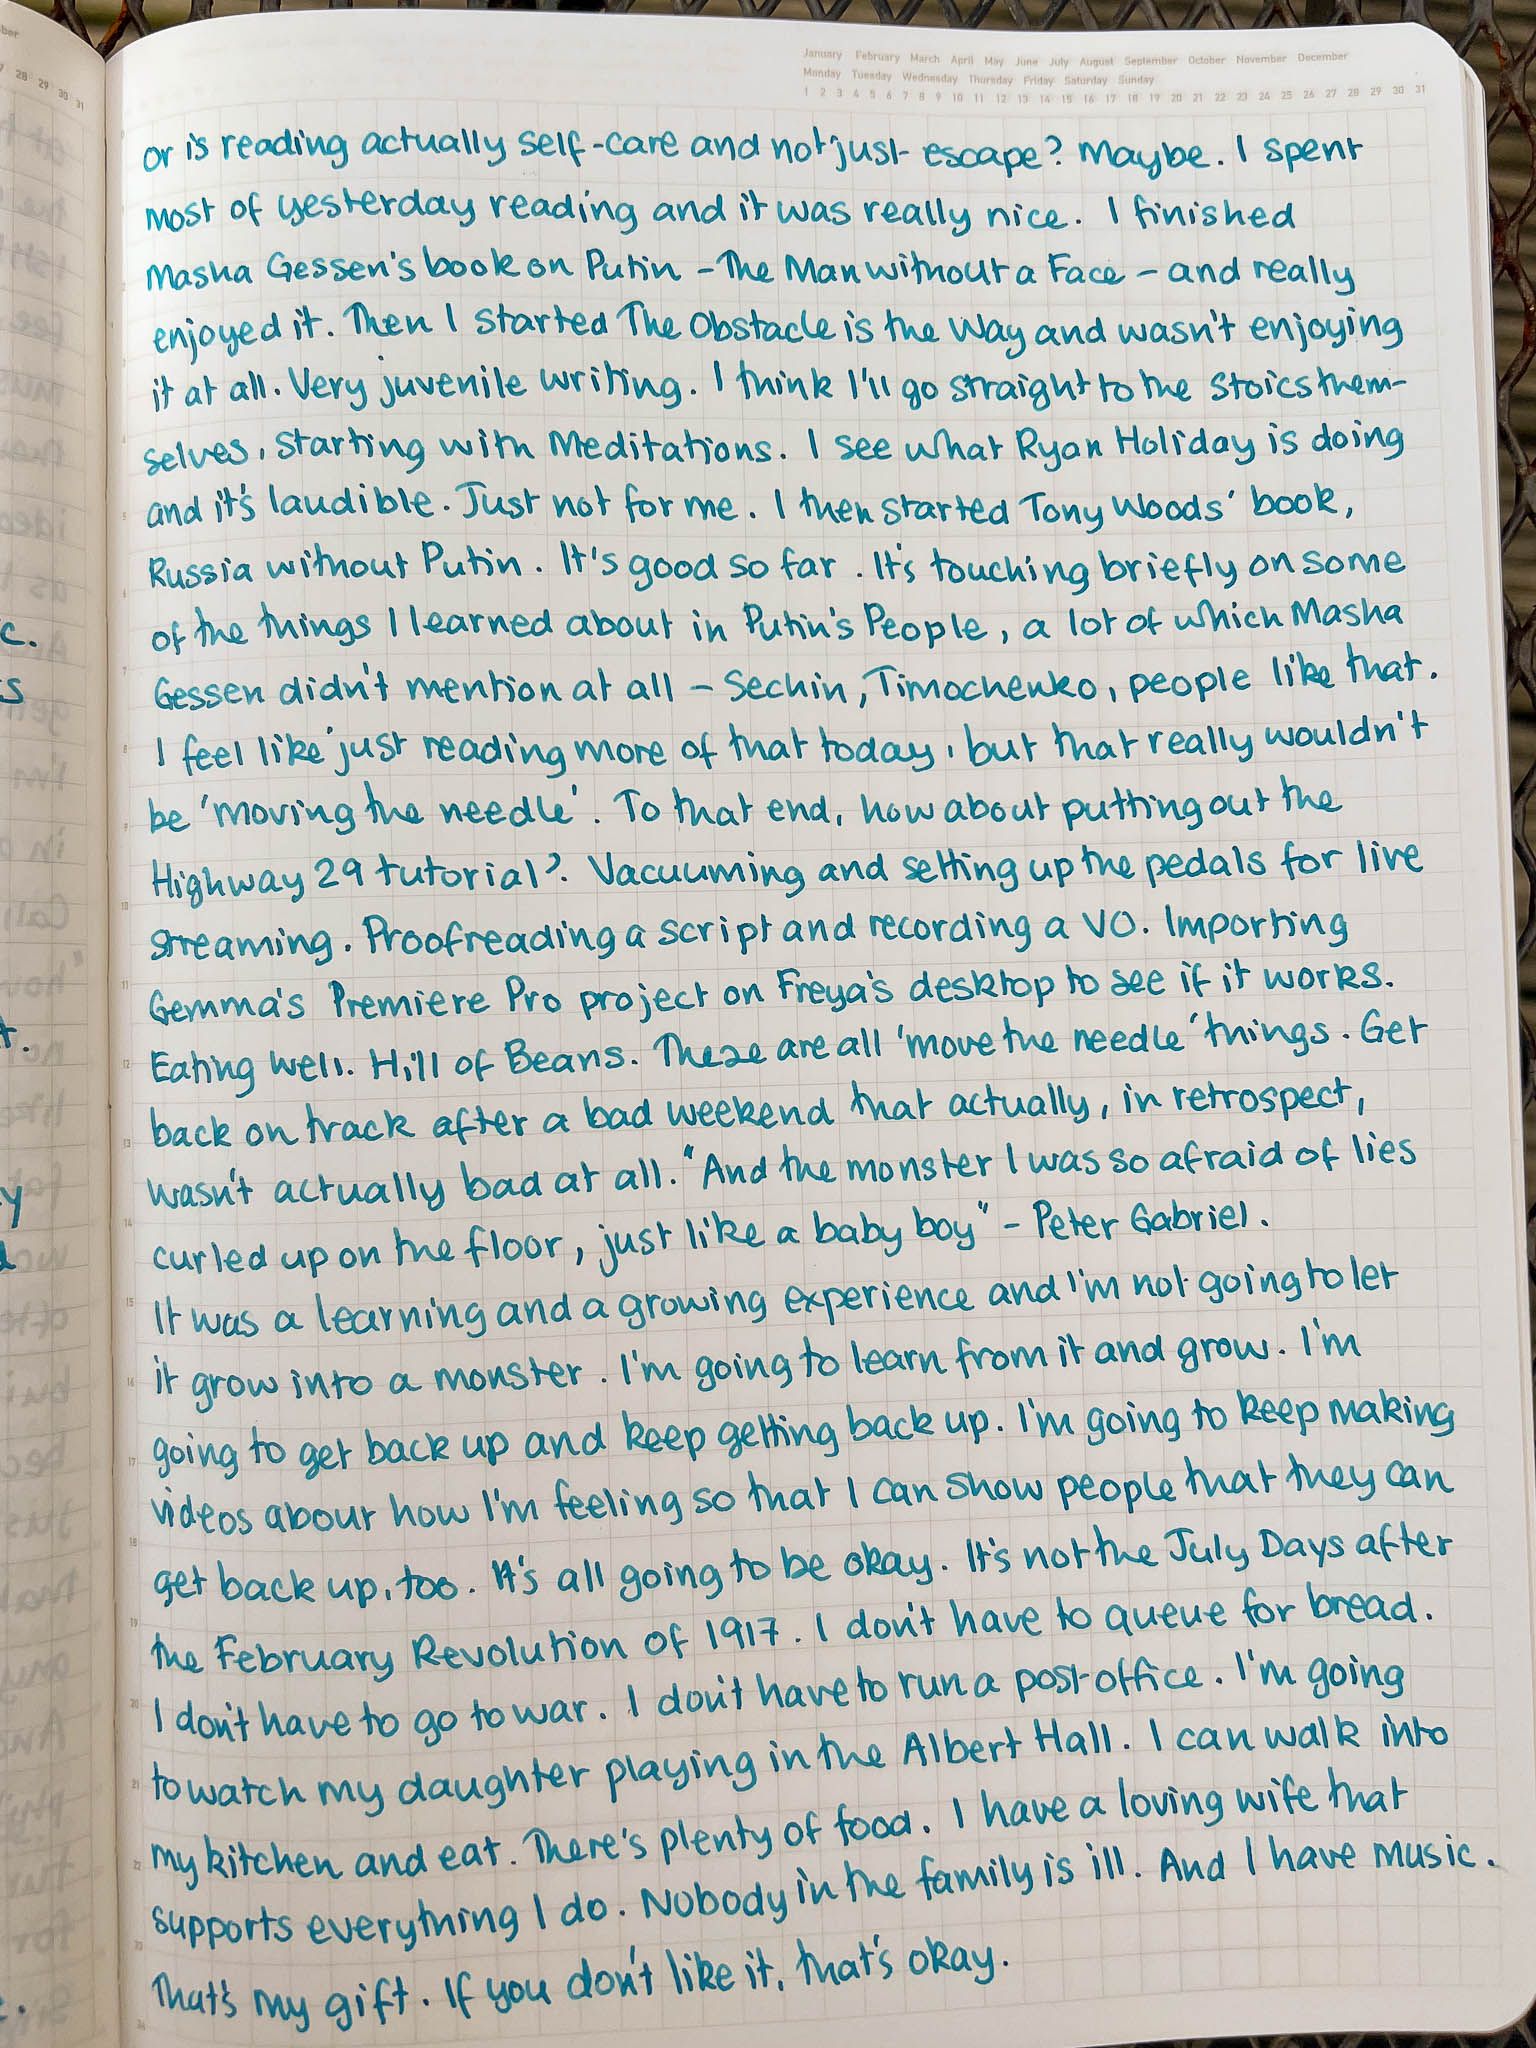 January February March April May June July August September October November December
Monday Tuesday Wednesday Thursday Friday Saturday Sunday
1 2 3 4 5 6 7 8 9 10 11 12 13 14 15 16 17 18 19 20 21 22 23 24 25 26 27 28 29 30 31
or is reading actually self-care and not just escape? Maybe. I spent
most of yesterday reading and it was really nice. I finished
Masha Gessen's book on Putin - The Man without a Face - and really
enjoyed it. Then I started The Obstacle is the Way and wasn't enjoying
it at all. Very juvenile writing. I think I'll go straight to the Stoics them-
selves, starting with Meditations. I see what Ryan Holiday is doing
and it's laudible. Just not for me. I then started Tony Woods' book,
Russia without Putin. It's good so far. It's touching briefly on some
of the things I learned about in Putin's People, a lot of which Masha
Gessen didn't mention at all - Sechin, Timochenko, people like that.
I feel like just reading more of that today, but that really wouldn't
be 'moving the needle'. To that end, how about putting out the
Highway 29 tutorial? Vacuuming and setting up the pedals for live
streaming. Proofreading a script and recording a VO. Importing
Gemma's Premiere Pro project on Freya's desktop to see if it works.
Eating well. Hill of Beans. These are all 'move the needle' things. Get
back on track after a bad weekend that actually, in retrospect,
wasn't actually bad at all. "And the monster I was so afraid of lies
curled up on the floor, just like a baby boy" - Peter Gabriel.
It was a learning and a growing experience and I'm not going to let
it grow into a monster. I'm going to learn from it and grow. I'm
going to get back up and keep getting back up. I'm going to keep making
videos about how I'm feeling so that I can show people that they can
get back up, too. It's all going to be okay. It's not the July Days after
the February Revolution of 1917. I don't have to queue for bread.
I don't have to go to war. I don't have to run a post-office. I'm going
to watch my daughter playing in the Albert Hall. I can walk into
my kitchen and eat. There's plenty of food. I have a loving wife that
supports everything I do. Nobody in the family is ill. And I have music.
That's my gift. If you don't like it, that's okay.